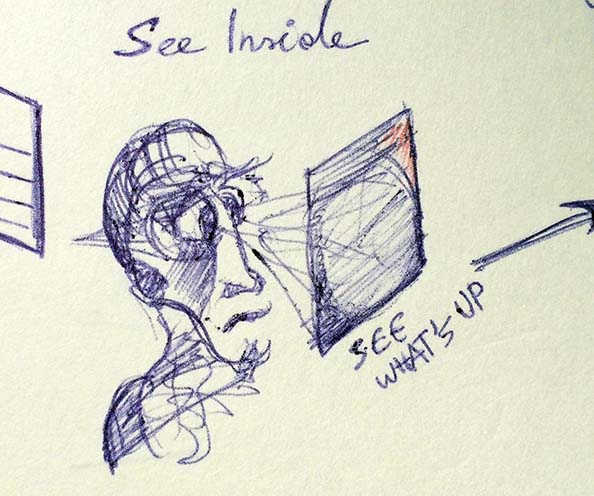 See Inside
SEE
WHAT'S UP